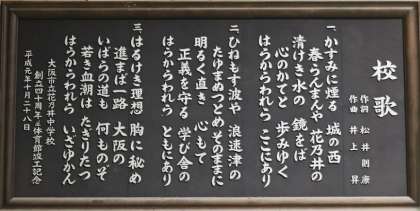 校歌
作詞 松井則康
作曲 井上昇
一、かすみに煙る 城の西
春らんまんや 花乃井の
清けき水の 鏡をば
心のかてと 歩みゆく
はらからわれら ここにあり
二、ひねもす波や 浪速津の
たゆまぬつとめ そのままに
明るく直き 心もて
正義を守る 学び舎の
はらからわれら ともにあり
三、はるけき理想 胸に秘め
進まば一路 大阪の
いばらの道も 何ものぞ
若き血潮は たぎりたつ
はらからわれら いざゆかん
大阪市立花乃井中学校
創立四十周年・体育館竣工記念
平成元年十月二十八日